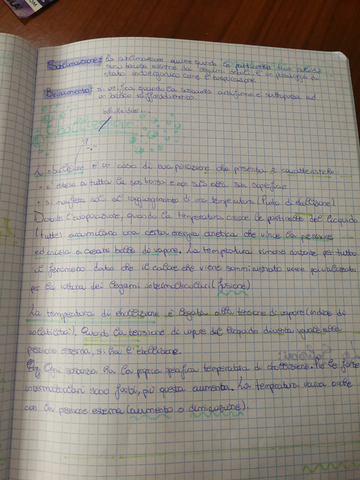 Sublimazione: la sublimazione avviene quando le particelle
stato
Brinamento: si verifica quando la sostanza aeriforme è sottoposta ad
un basso raffreddamento.
Ebollizione
L'ebollizione è un caso di evaporazione che presenta 2 caratteristiche
• è estesa a tutta la sostanza e non solo alla sua superficie
• si manifesta solo al raggiungimento di una temperatura (Punto di ebollizione)
Durante l'evaporazione, quando la temperatura cresce le particelle del liquido
(tutte) accumulano una certa energia cinetica che vince la pressione
ed a creare bolle di vapore. La temperatura rimane costante per tutto
il fenomeno dato che il calore che viene somministrato viene
per la rottura dei legami intermolecolari (fusione)
La temperatura di ebollizione è legata alla tensione di vapore (indice di
volatilità). Quando la tensione di vapore del liquido diventa uguale alla
pressione esterna, si ha l'ebollizione.
Ogni sostanza ha la propria specifica temperatura di ebollizione. Più le forze
intermolecolari sono forti, più questa aumenta. La temperatura varia anche
con la pressione esterna (aumento o diminuzione).